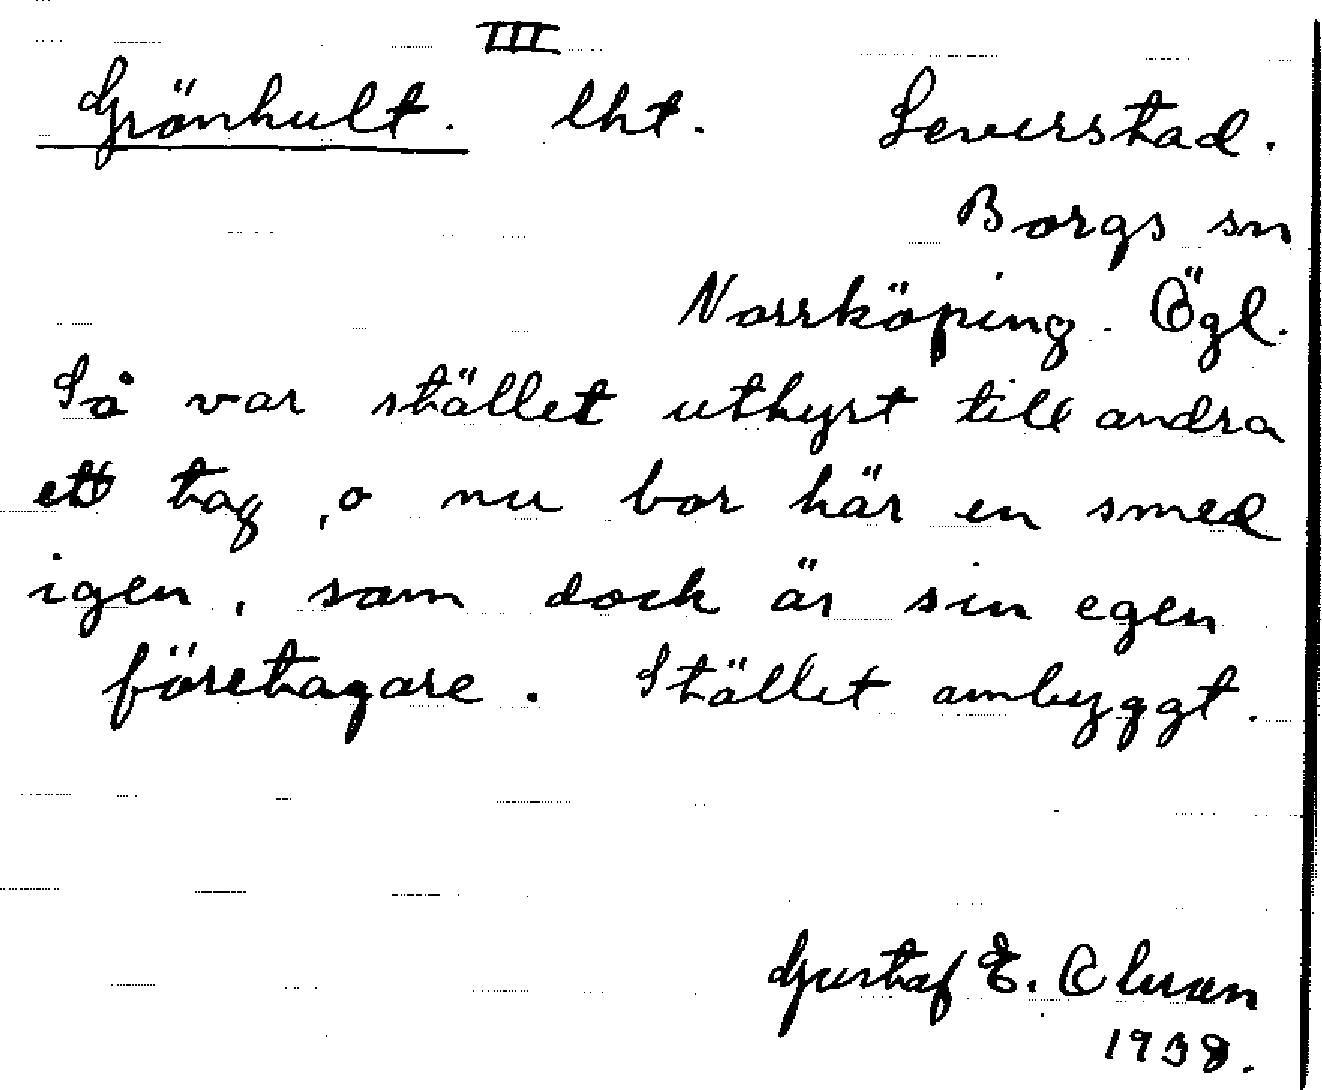 III
Grönhult. lht. Leverstad.
Borgs sn
Norrköping. Ögl.
Så var stället uthyrt till andra
ett tag, o nu bor här en smed
igen, som dock är sin egen
företagare. Stället ombyggt.
Gustaf E. Olsson
1938.